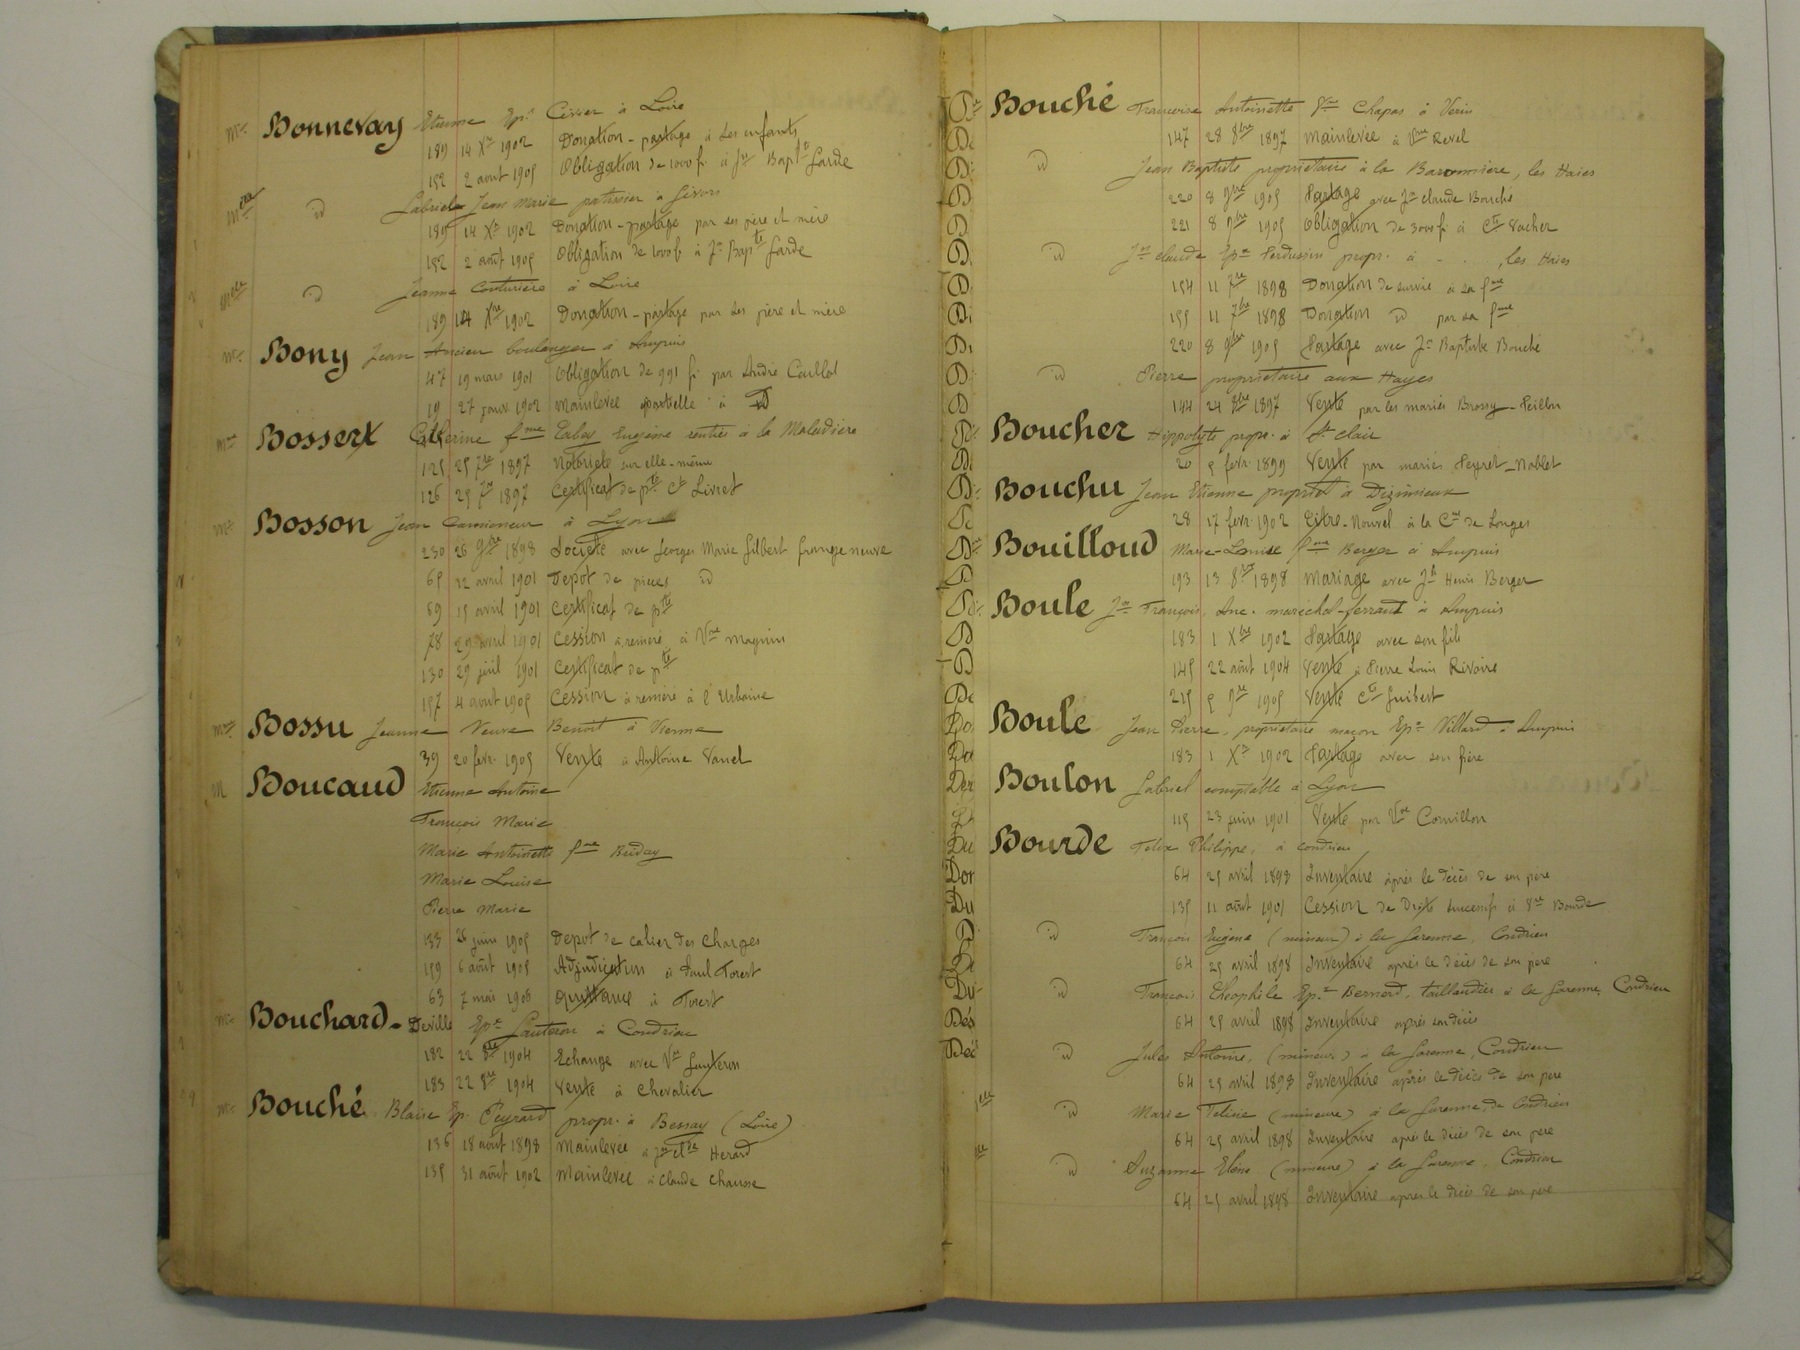 Mr Bonnevay Etienne Ep. Cesser à Loire
189 14 Xre 1902 Donation-partage à ses enfants
152 2 aout 1905 Obligation de 1000 f. à Jn Bapte Garde
id Gabriel Jean Marie patissier à Givors
189 14 Xre 1902 Donation-partage par ses père et mère
152 2 août 1905 Obligation de 1000 f. à Jn Bapte Garde
id Jeanne Couturière à Loire
189 14 Xbre 1902 Donation-partage par ses père et mère
Mr Bony Jean Ancien boulanger à Ampuis
47 19 mars 1901 Obligation de 991 f. par André Caillet
19 27 janv. 1902 Mainlevée partielle à id
Bossert Catherine fme Eugène rentier à la Maladière
125 25 7bre 1897 Notoriété sur elle-même
126 25 7bre 1897 Certificat de pté Ce Livret
Mr Bosson Jean Camionneur à Lyon
230 26 9bre 1898 Société avec Georges Marie Gilbert Grangeneuve
65 12 avril 1901 Depot de pieces id
69 15 avril 1901 Certificat de pté
78 29 avril 1901 Cession à réméré à Vve Magnin
130 29 juil 1901 Certificat de pté
157 4 aout 1905 Cession à réméré à l'Urbaine
Bossu Jeanne Veuve Benoit à Vienne
39 20 fevr. 1905 Vente à Antoine Vanel
M Boucaud Etienne Antoine
François Marie
Marie Antoinette fme
Marie Louise
Pierre Marie
133 26 juin 1905 Depot de cahier des charges
159 6 août 1905 Adjudication à Paul Forest
63 7 mai 1906 Quittance à Forest
Bouchard-Deville Epse Gauteron à Condrieu
182 22 8bre 1904 Echange avec Vve Gauteron
183 22 8bre 1904 Vente à Chevalier
Bouché Blaise Ep. Peyrard propr. à Bessay (Loire)
136 18 août 1898 Mainlevée à Herard
135 31 août 1902 Mainlevée à Claude Chausse
Bouché Françoise Antoinette Vve Chapas à Verin
147 28 8bre 1897 Mainlevée à Vve Revel
id Jean Baptiste propriétaire à la Baronnière, les Haies
220 8 9bre 1905 Partage avec Jn Claude Bouché
221 8 9bre 1905 Obligation de 3000 f. à Ct Vacher
id Jn Claude Epse Perdussin propr. à - . . . , les Haies
154 11 7bre 1898 Donation de survie à sa fme
155 11 7bre 1898 Donation id par sa fme
220 8 9bre 1905 Partage avec Jn Baptiste Bouché
id Pierre propriétaire aux Hayes
144 24 8bre 1897 Vente par les mariés Brossy-Peillon
Boucher Hippolyte propr. à St Clair
20 5 fevr. 1899 Vente par mariés Peyret-Noblet
Bouchu Jean Etienne propriét. à Dizimieux
28 17 fevr. 1902 Titre-Nouvel à la Cne de Longes
Bouilloud Marie-Louise fme Berger à Ampuis
193 13 8bre 1898 Mariage avec Jh Henri Berger
Boule Jn François, Anc. maréchal-ferrant à Ampuis
183 1 Xbre 1902 Partage avec son fils
145 22 août 1904 Vente à Pierre Louis Rivoire
215 5 9bre 1905 Vente Ct Guibert
Boule Jean Pierre, propriétaire maçon Epse Villard à Ampuis
183 1 Xre 1902 Partage avec son frère
Boulon Gabriel comptable à Lyon
115 23 juin 1901 Vente par Vve Cornillon
Bourde Felix Philippe, à Condrieu
64 25 avril 1898 Inventaire après le décès de son père
135 11 août 1901 Cession de Droits successifs à Vve Bourde
id François Eugène (mineur) à la Garenne, Condrieu
64 25 avril 1898 Inventaire après le décès de son père
id François Théophile Epse Bernard, taillandier à la Garenne, Condrieu
64 25 avril 1898 Inventaire après son décès
id Jules Antoine, (mineur) à la Garenne, Condrieu
64 25 avril 1898 Inventaire après le décès de son père
id Marie Feline (mineure) à la Garenne, de Condrieu
64 25 avril 1898 Inventaire après le décès de son père
id Suzanne Elena (mineure) à la Garenne, Condrieu
64 25 avril 1898 Inventaire après le décès de son père